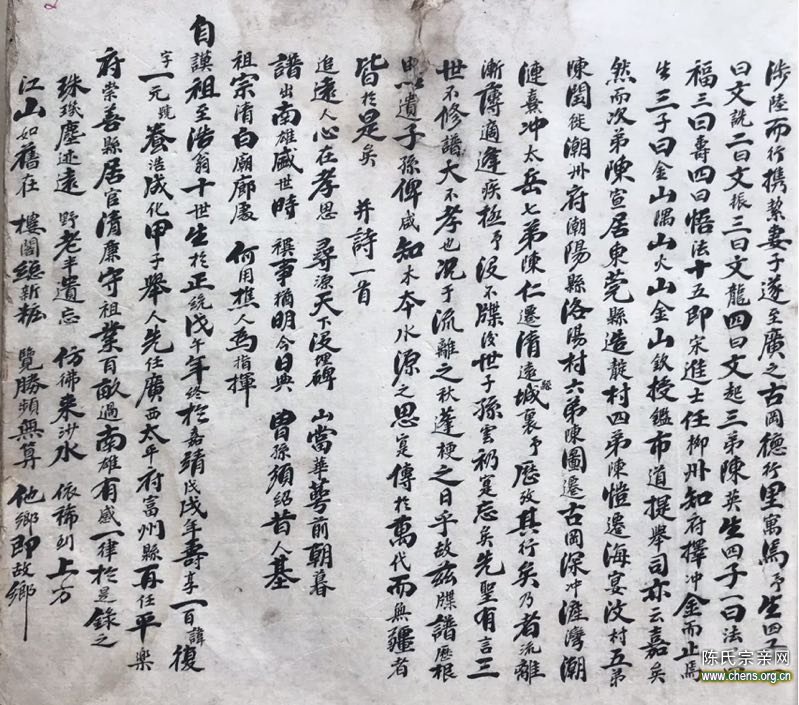 涉陸而行携挈妻子遂至廣之古岡德行里寓焉予生四子一
曰文説二曰文振三曰文龍四曰文起三弟陳英生四子一曰法
福三曰壽四曰悟法十五即宋進士任柳州知府擇冲金而止焉
生三子曰金山隅山火山金山欽授鑑布道提舉司亦云嘉矣
然而次弟陳宣居東莞縣造靛村四弟陳愷遷海宴汶村五弟
陳閏徙潮州府潮陽縣洛陽村六弟陳圖遷古岡深冲涯灣潮
漣囊冲太岳七弟陳仁遷清遠縣城裏予歷攷其行矣乃者流離
漸薄適逢疾極予没不牒後世子孫雲礽寔忘矣先聖有言三
世不修譜大不孝也况于流離之秋蓬梗之日乎故兹牒譜歷根
遺子孫俾咸知木本水源之思寔傳於萬代而無疆者
皆於是矣 并詩一首
追遠人心在孝思 尋源天下没埋碑 山當華萼前朝暮
譜出南雄盛世時 禩事猶明今日典 曾孫須紹昔人基
祖宗清白廟廊處 何用樵人爲指揮
自謨祖至浩翁十世生於正統戊午年終於嘉靖戊戌年壽享一百諱復
字一元號養浩成化甲子舉人先任廣西太平府富州縣再任平樂
府崇善縣居官清廉守祖業百畝過南雄有感一律於是錄之
珠璣塵迹遠 野老半遺忘 仿彿來沙水 依稀到上方
江山如舊在 樓閣總新粧 覽勝頻無算 他鄉即故鄉
陈氏宗亲网
www.chens.org.cn